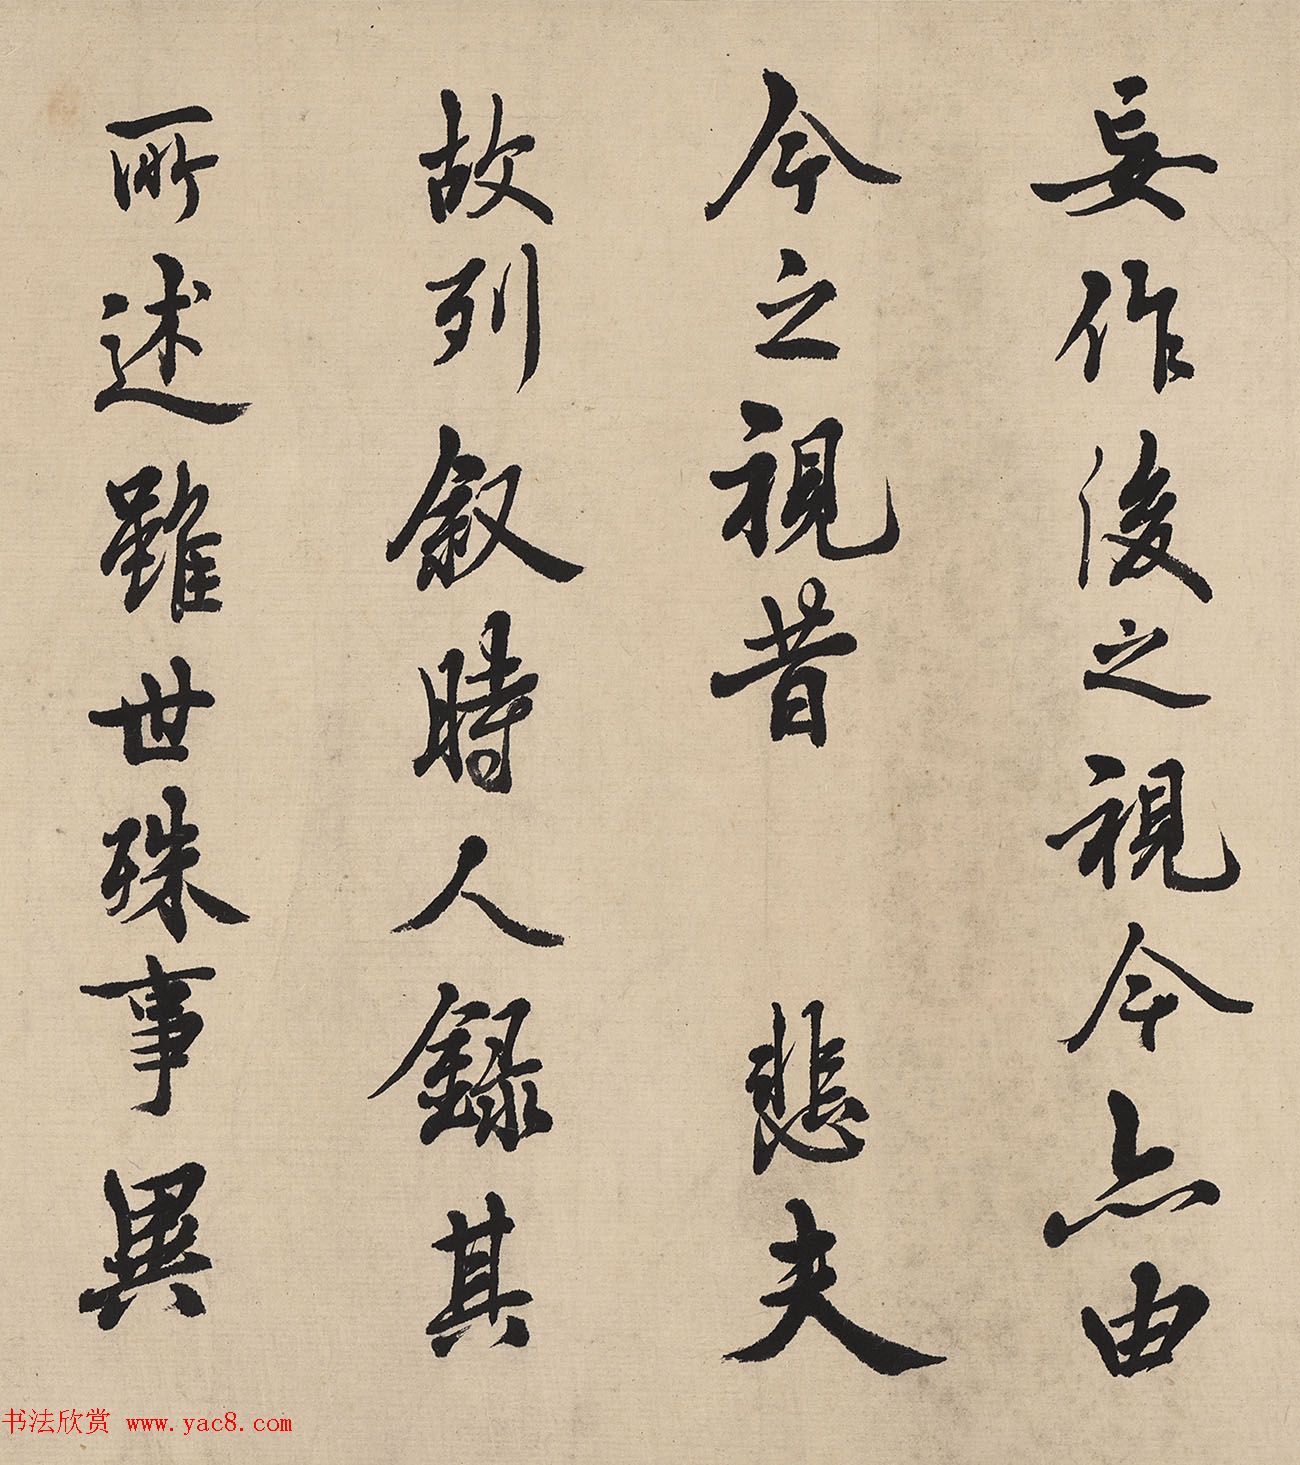 妄作後之視今亦由
今之視昔 悲夫
故列叙時人録其
所述雖世殊事異
书法欣赏 www.yac8.com